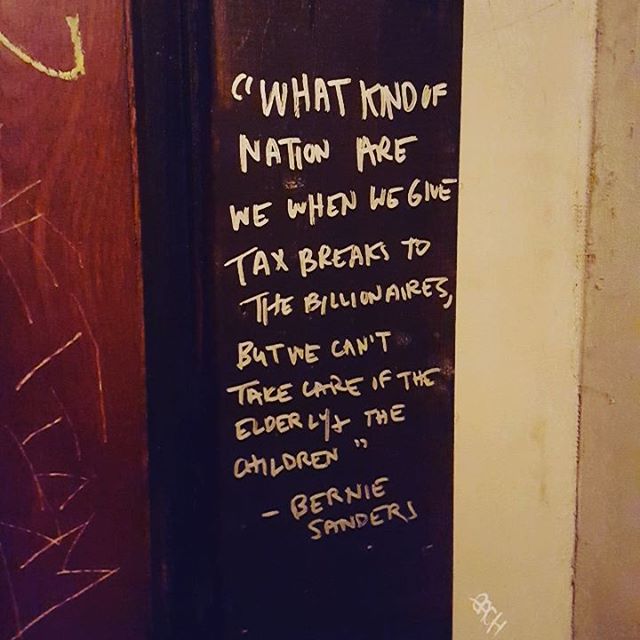 "WHAT KIND OF
NATION ARE
WE WHEN WE GIVE
TAX BREAKS TO
THE BILLIONAIRES,
BUT WE CAN'T
TAKE CARE IF THE
ELDERLY + THE
CHILDREN"
- BERNIE
SANDERS